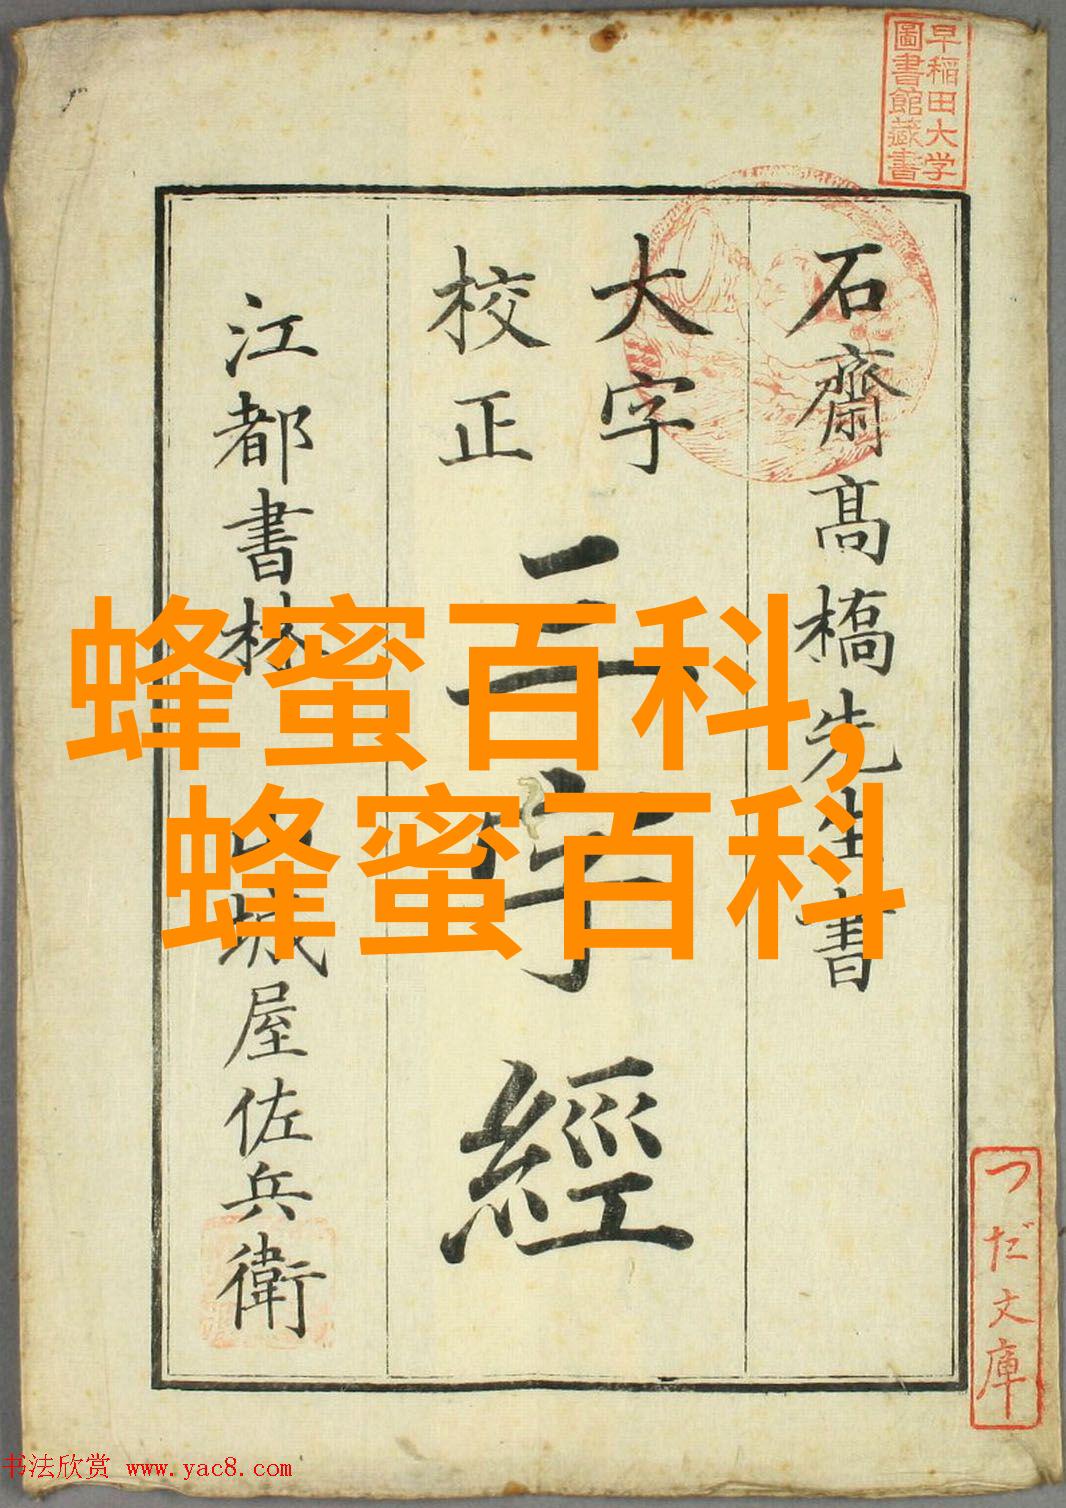 早稲田大学
圖書館藏書
石齋髙橋先生書
大字
校正
三字經
江都書林
山城屋佐兵衛
蜂蜜百科,
蜂蜜百科
つだ文庫
书法欣赏 www.yac8.com